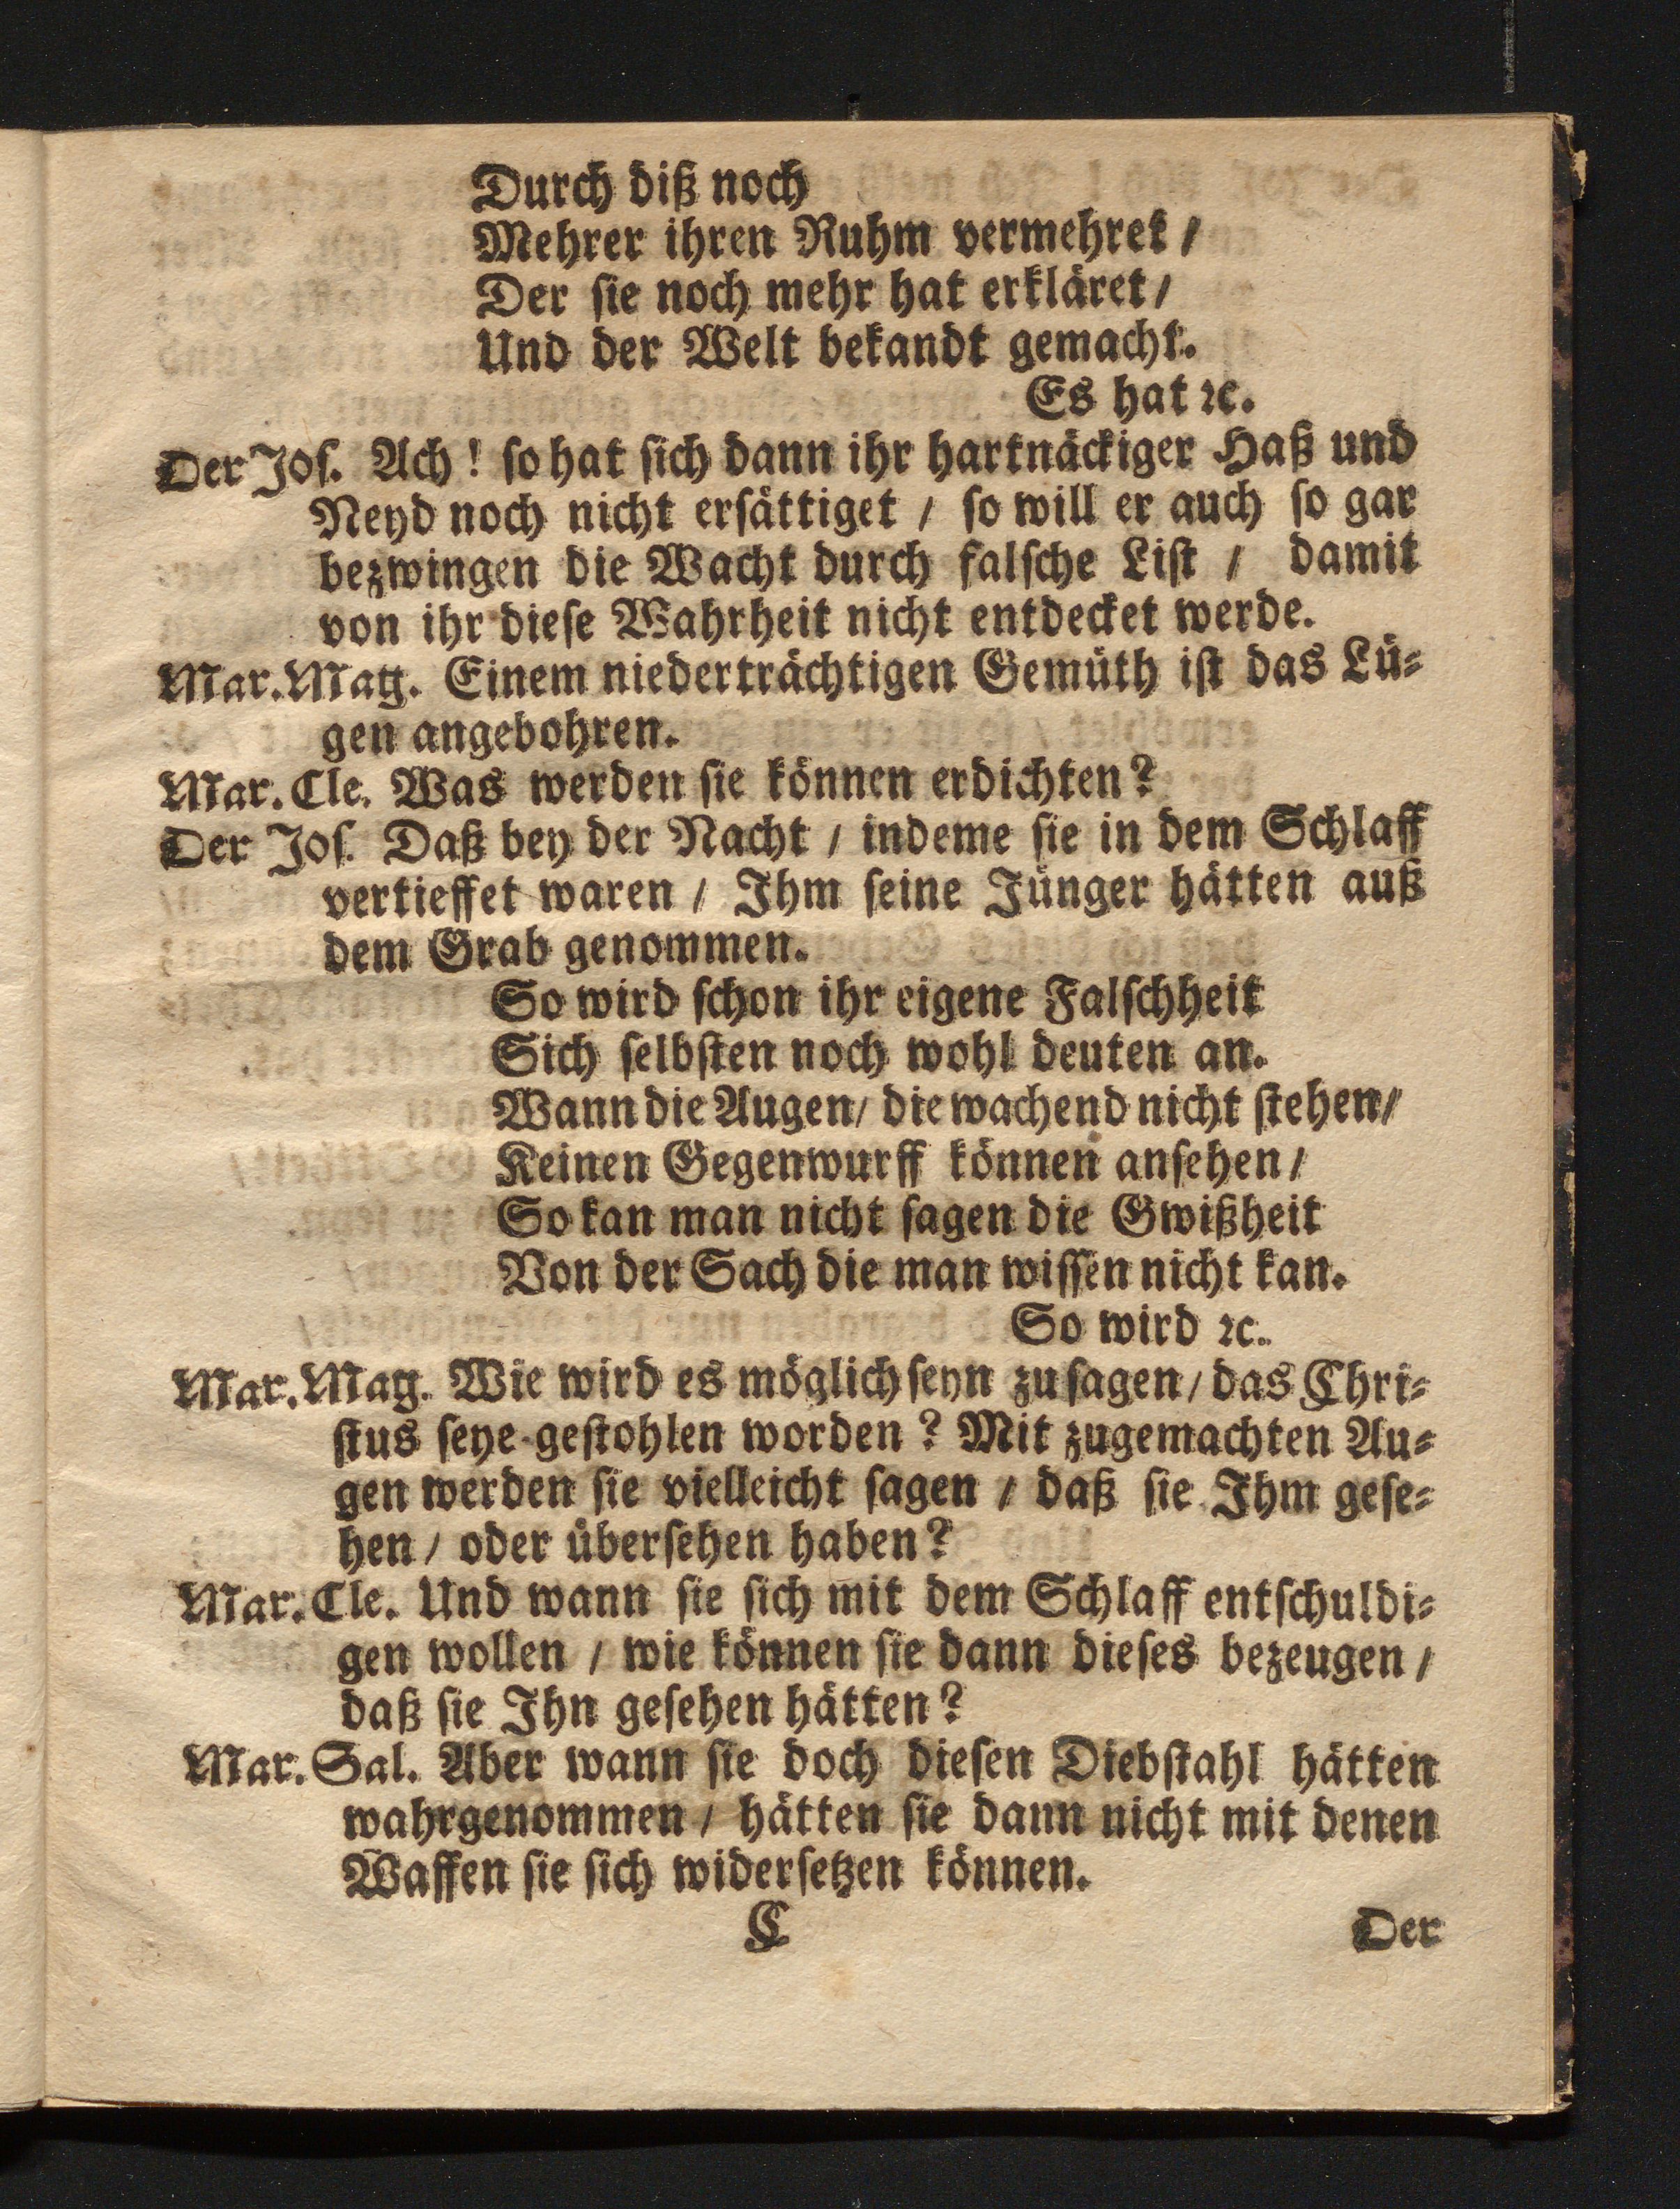 Durch diß noch
Mehrer ihren Ruhm vermehret /
Der ſie noch mehr hat erkläret /
Und der Welt bekandt gemacht.
Es hat ꝛc.
Der Joſ. Ach! ſo hat ſich dann ihr hartnäckiger Haß und
Neyd noch nicht erſättiget / ſo will er auch ſo gar
bezwingen die Wacht durch falſche Liſt / damit
von ihr dieſe Wahrheit nicht entdecket werde.
Mar. Mag. Einem niederträchtigen Gemüth iſt das Lü⸗
gen angebohren.
Mar. Cle. Was werden ſie können erdichten?
Der Joſ. Daß bey der Nacht / indeme ſie in dem Schlaff
vertieffet waren / Ihm ſeine Jünger hätten auß
dem Grab genommen.
So wird ſchon ihr eigene Falſchheit
Sich ſelbſten noch wohl deuten an.
Wann die Augen / die wachend nicht ſtehen /
Keinen Gegenwurff können anſehen /
So kan man nicht ſagen die Gwißheit
Von der Sach die man wiſſen nicht kan.
So wird ꝛc.
Mar. Mag. Wie wird es möglich ſeyn zu ſagen / das Chri⸗
ſtus ſeye geſtohlen worden? Mit zugemachten Au⸗
gen werden ſie vielleicht ſagen / daß ſie Ihm geſe⸗
hen / oder überſehen haben?
Mar. Cle. Und wann ſie ſich mit dem Schlaff entſchuldi⸗
gen wollen / wie können ſie dann dieſes bezeugen /
daß ſie Ihn geſehen hätten?
Mar. Sal. Aber wann ſie doch dieſen Diebſtahl hätten
wahrgenommen / hätten ſie dann nicht mit denen
Waffen ſie ſich widerſetzen können.
C Der